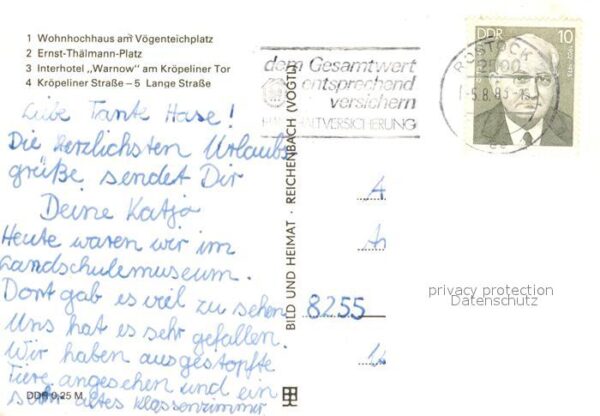 1 Wohnhochhaus am Vögenteichplatz
2 Ernst-Thälmann-Platz
3 Interhotel „Warnow" am Kröpeliner Tor
4 Kröpeliner Straße – 5 Lange Straße
Liebe Tante Hase!
Die herzlichsten Urlaubs
grüße sendet Dir
Deine Katja
Heute waren wir im
Landschulemuseum.
Dort gab es viel zu sehen
Uns hat es sehr gefallen.
Wir haben ausgestopfte
Tiere angesehen und ein
sehr altes Klassenzimmer
DDR 0,25 M
BILD UND HEIMAT · REICHENBACH (VOGTL)
dem Gesamtwert
entsprechend
versichern
HAUSHALTVERSICHERUNG
ROSTOCK
2500
-5.8.85
DDR 10
8255
privacy protection
Datenschutz